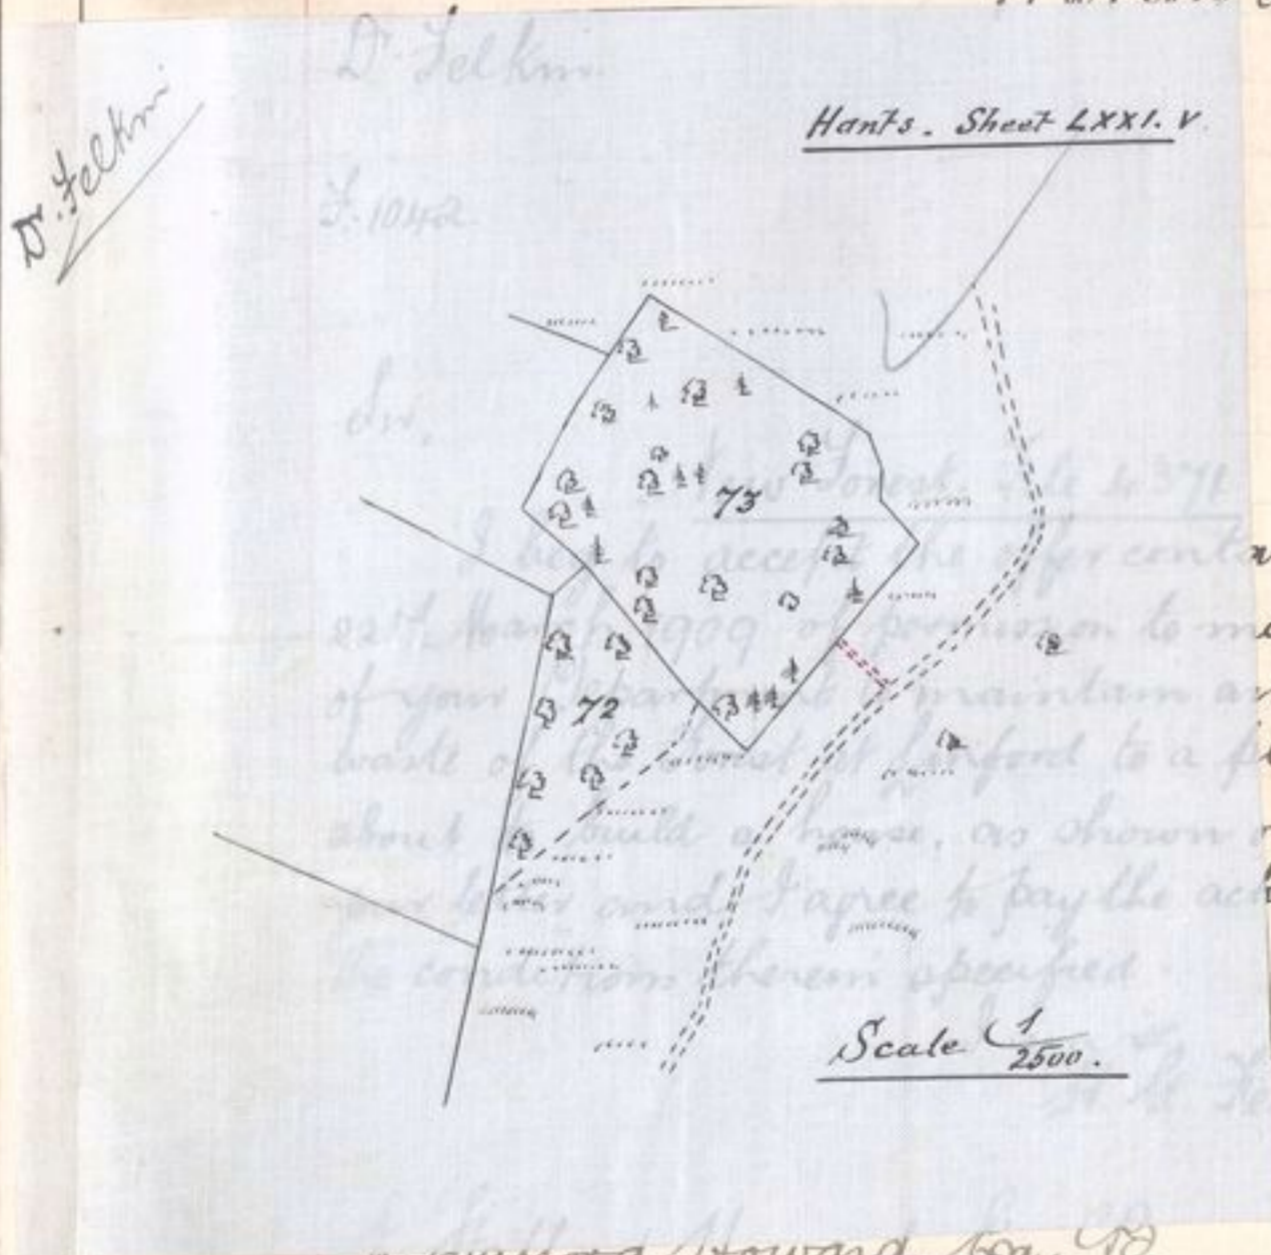 Dr. Felkin
Dr. Felkin
Hants. Sheet LXXI. V
F. 1042
Sir,
73
New Forest. File 4371
I beg to accept the offer
22nd March 1909 of permission to
of your Department to maintain
waste of the Forest at Linford to a
about to build a house, as shown
72
your letter and I agree to pay the
the conditions therein specified
Scale 1/2500.
Howard